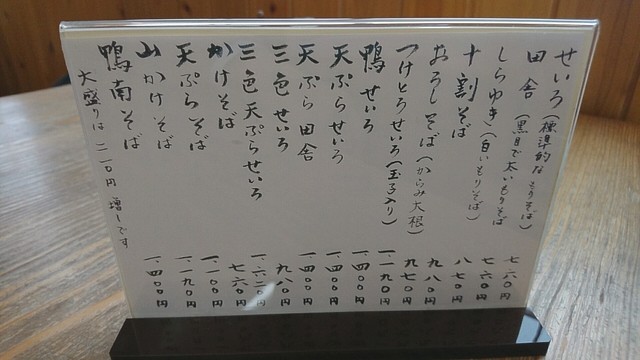 せいろ（標準的なもりそば） 七六〇円
田舎（黒目で太いもりそば） 七六〇円
しらゆき（白いもりそば） 八七〇円
十割そば 九八〇円
おろしそば（からみ大根） 九七〇円
つけとろせいろ（玉子入り） 一、一九〇円
鴨せいろ 一、四〇〇円
天ぷらせいろ 一、四〇〇円
天ぷら田舎 一、四〇〇円
三色せいろ 九八〇円
三色天ぷらせいろ 一、六二〇円
かけそば 七六〇円
天ぷらそば 一、一〇〇円
山かけそば 一、一九〇円
鴨南そば 一、四〇〇円
大盛りは二一〇円増しです